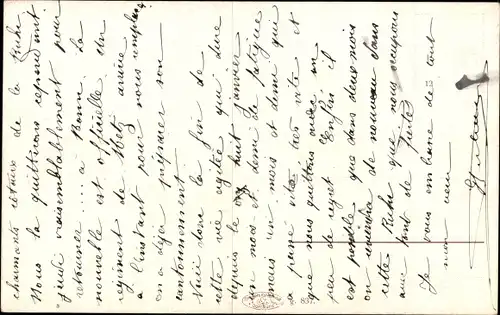 charmants de la Ruhr
Nous la quitterons
jeudi vraisemblablement pour
retourner.... à Bonn. La
nouvelle est officielle, un
régiment de arrive
à l'instant pour nous remplacer
on a déjà préparer son
cantonnement.
Voici donc la fin de
cette vie agitée qui dure
depuis le huit janvier
un mois et demi de fatigue
mais un mois et demi qui
a passé très vite et
que nous quittons avec un
peu de regret. Enfin il
est possible que dans deux mois
on revienne de nouveau dans
cette Ruhr que nous occupons
avec tant de fierté.
Je vous embrasse de tout
mon cœur
P. 837.